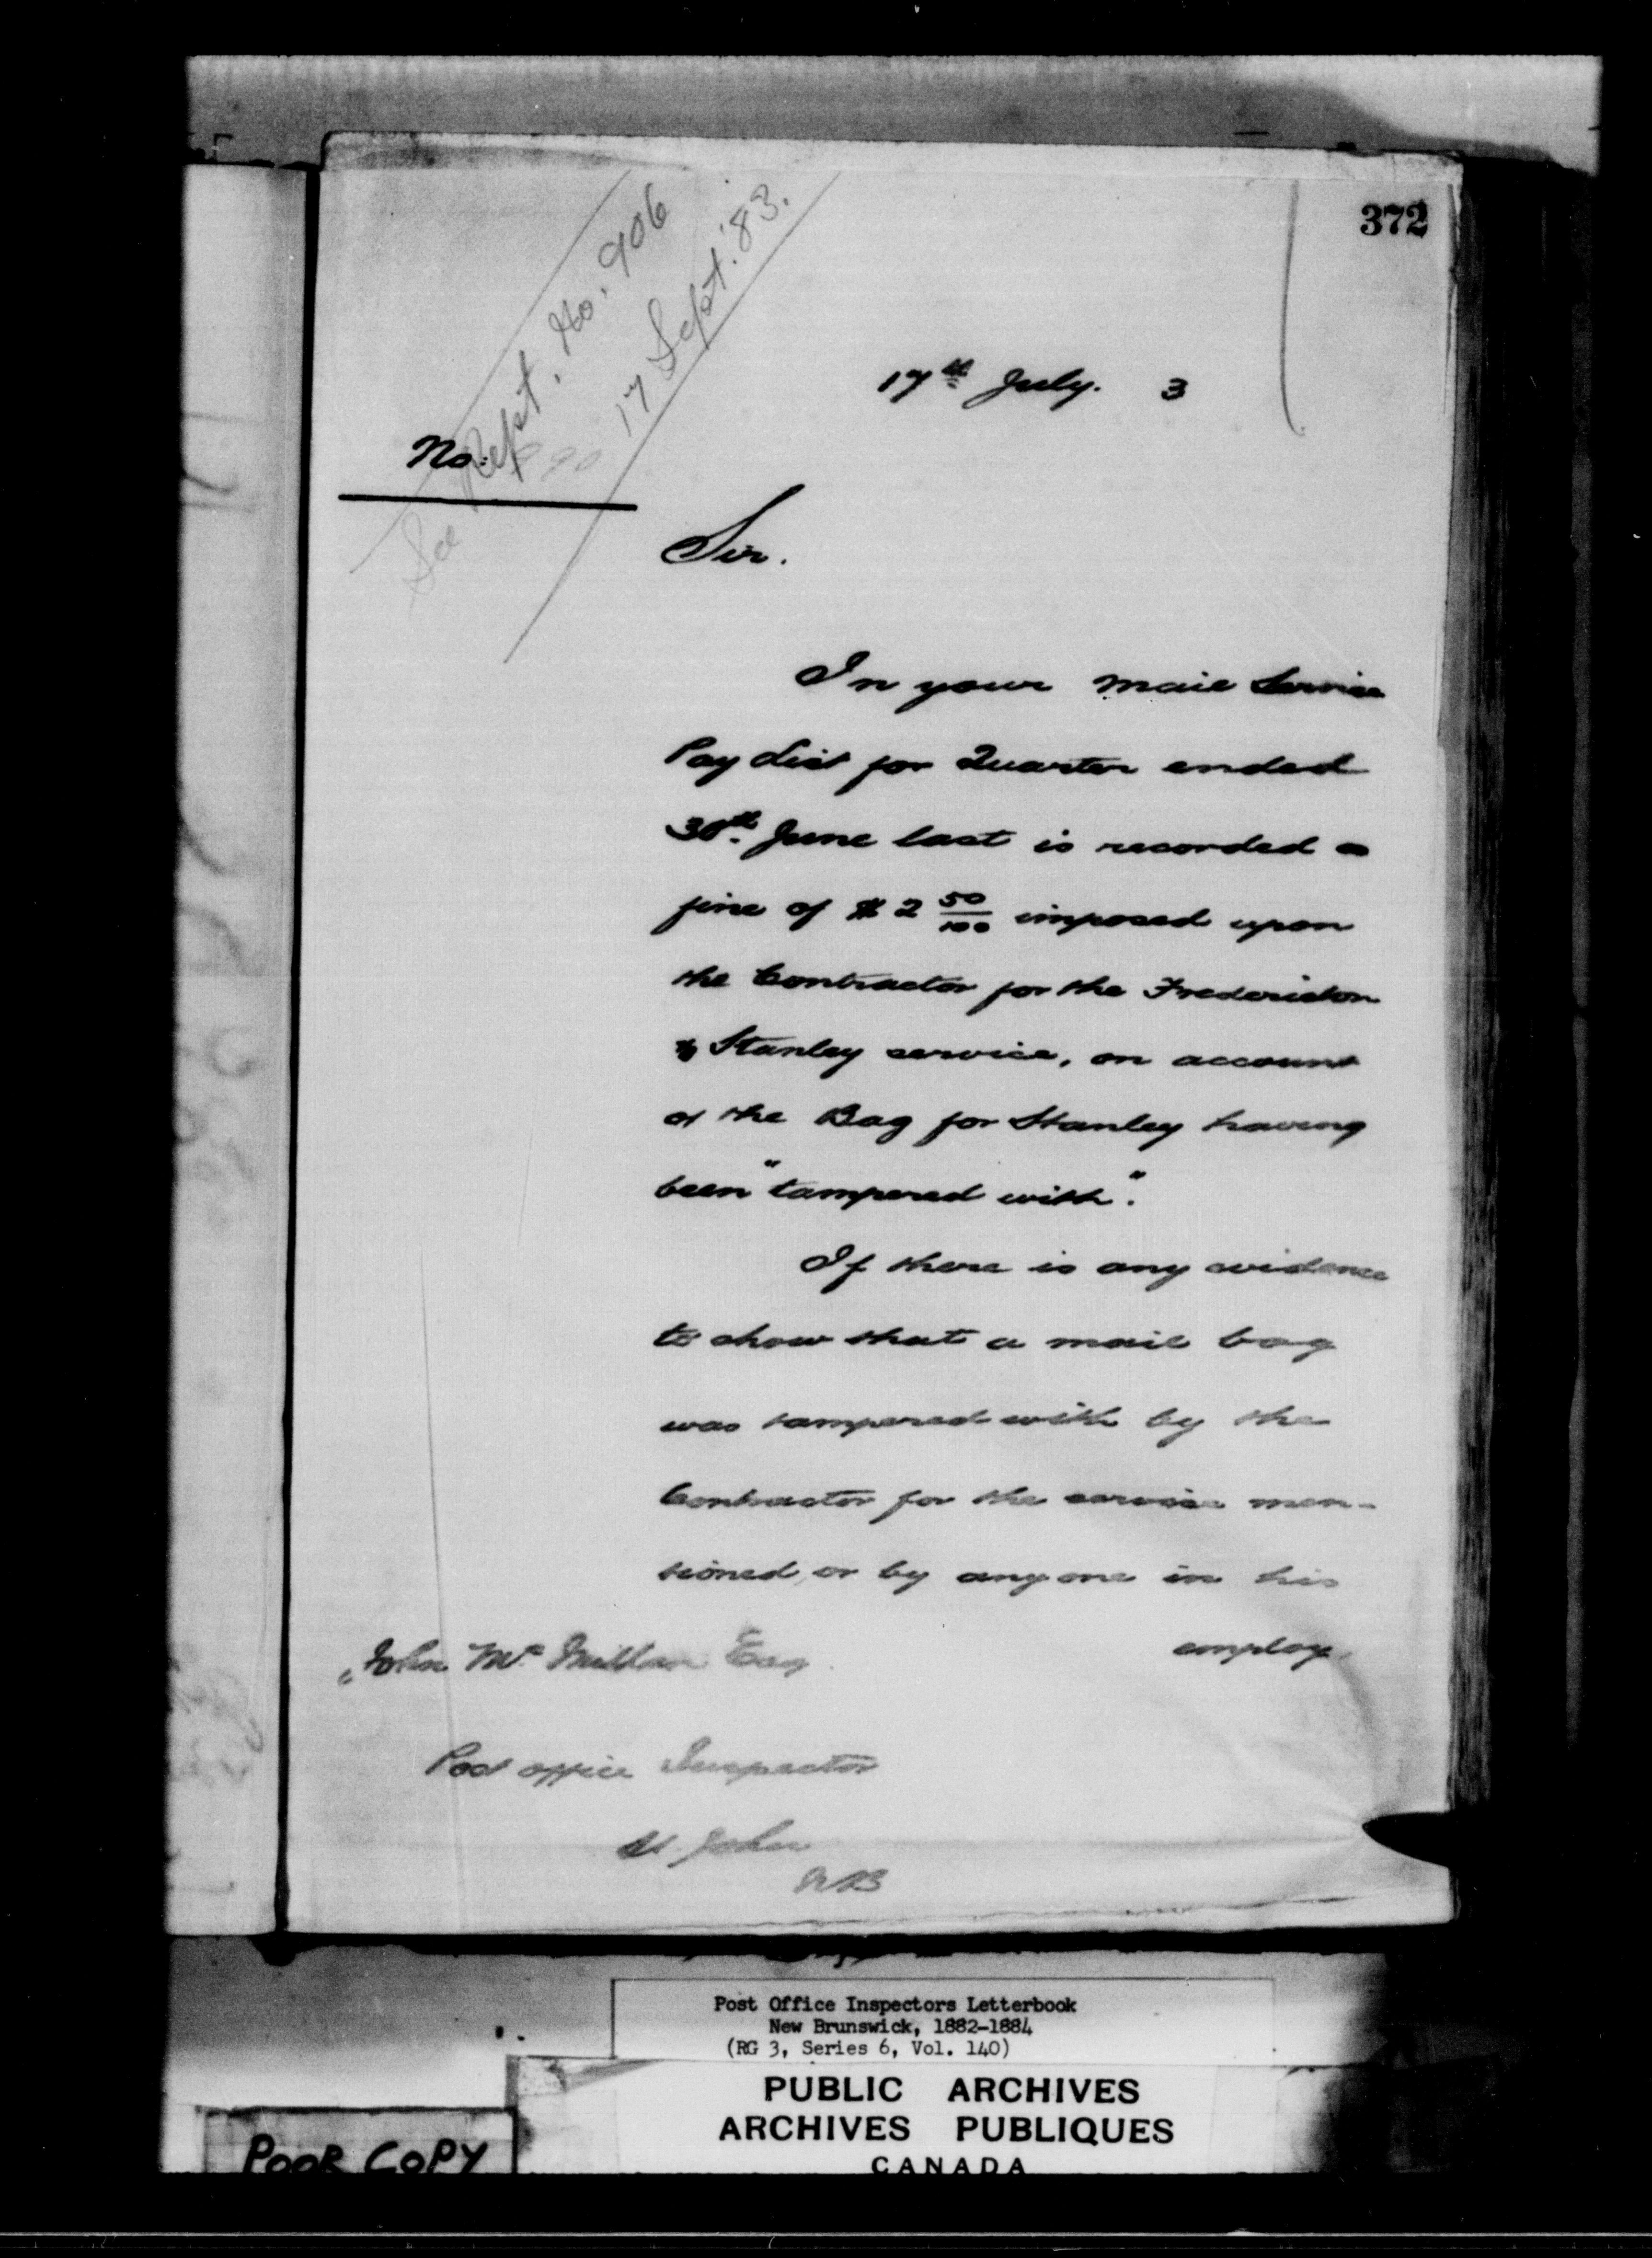 372
See Rept. No. 906
17 Sept. '83.
17th July. 3
No: 990
Sir.
In your Mail Service
Pay List for Quarter ended
30th June last is recorded a
fine of $2 50/100 imposed upon
the Contractor for the Fredericton
& Stanley service, on account
of the Bag for Stanley having
been "tampered with".
If there is any evidence
to show that a mail bag
was tampered with by the
Contractor for the service men-
tioned, or by anyone in his
employ,
John McMillan Esq
Post office Inspector
St. John
NB
Post Office Inspectors Letterbook
New Brunswick, 1882-1884
(RG 3, Series 6, Vol. 140)
PUBLIC ARCHIVES
ARCHIVES PUBLIQUES
CANADA
POOR COPY